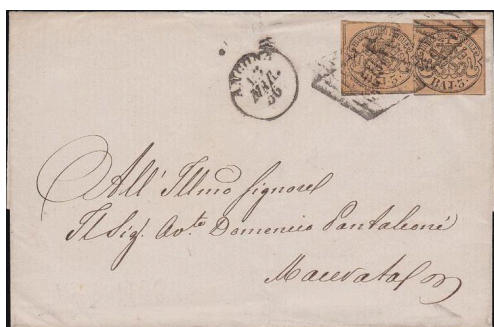 ANCONA
13
MAR.
56
BAJ. 3.
BAJ. 3.
All' Illmo Signore
Il Sig. Avto Domenico Pantaleoni
Macerata